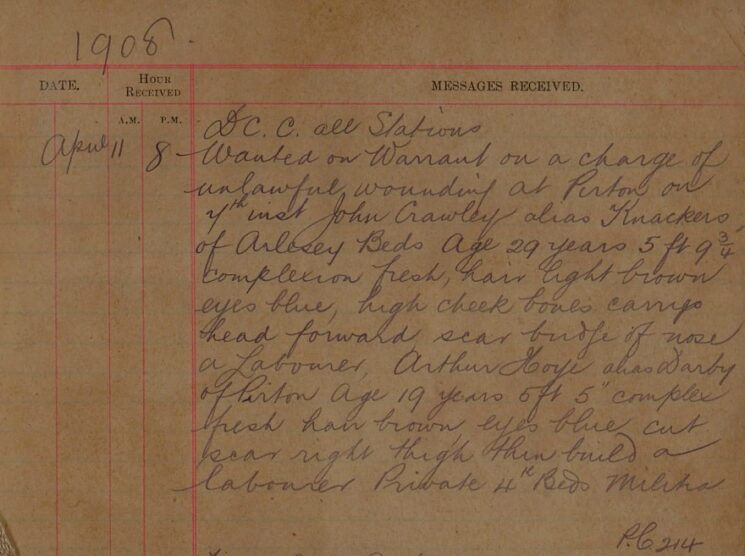 1908.
DATE. HOUR RECEIVED MESSAGES RECEIVED.
A.M. P.M.
D.C.C. all Stations
April 11 8 Wanted on Warrant on a charge of
unlawful wounding at Pirton on
7th inst John Crawley alias Knackers
of Arlesey Beds Age 29 years 5 ft 9 3/4
complexion fresh, hair light brown
eyes blue, high cheek bones carrys
head forward scar bridge of nose
a Labourer, Arthur Hoye alias Darby
of Pirton Age 19 years 5ft 5" complex
fresh hair brown, eyes blue, cut
scar right thigh thin build a
labourer Private 4th Beds Militia
P.C 214